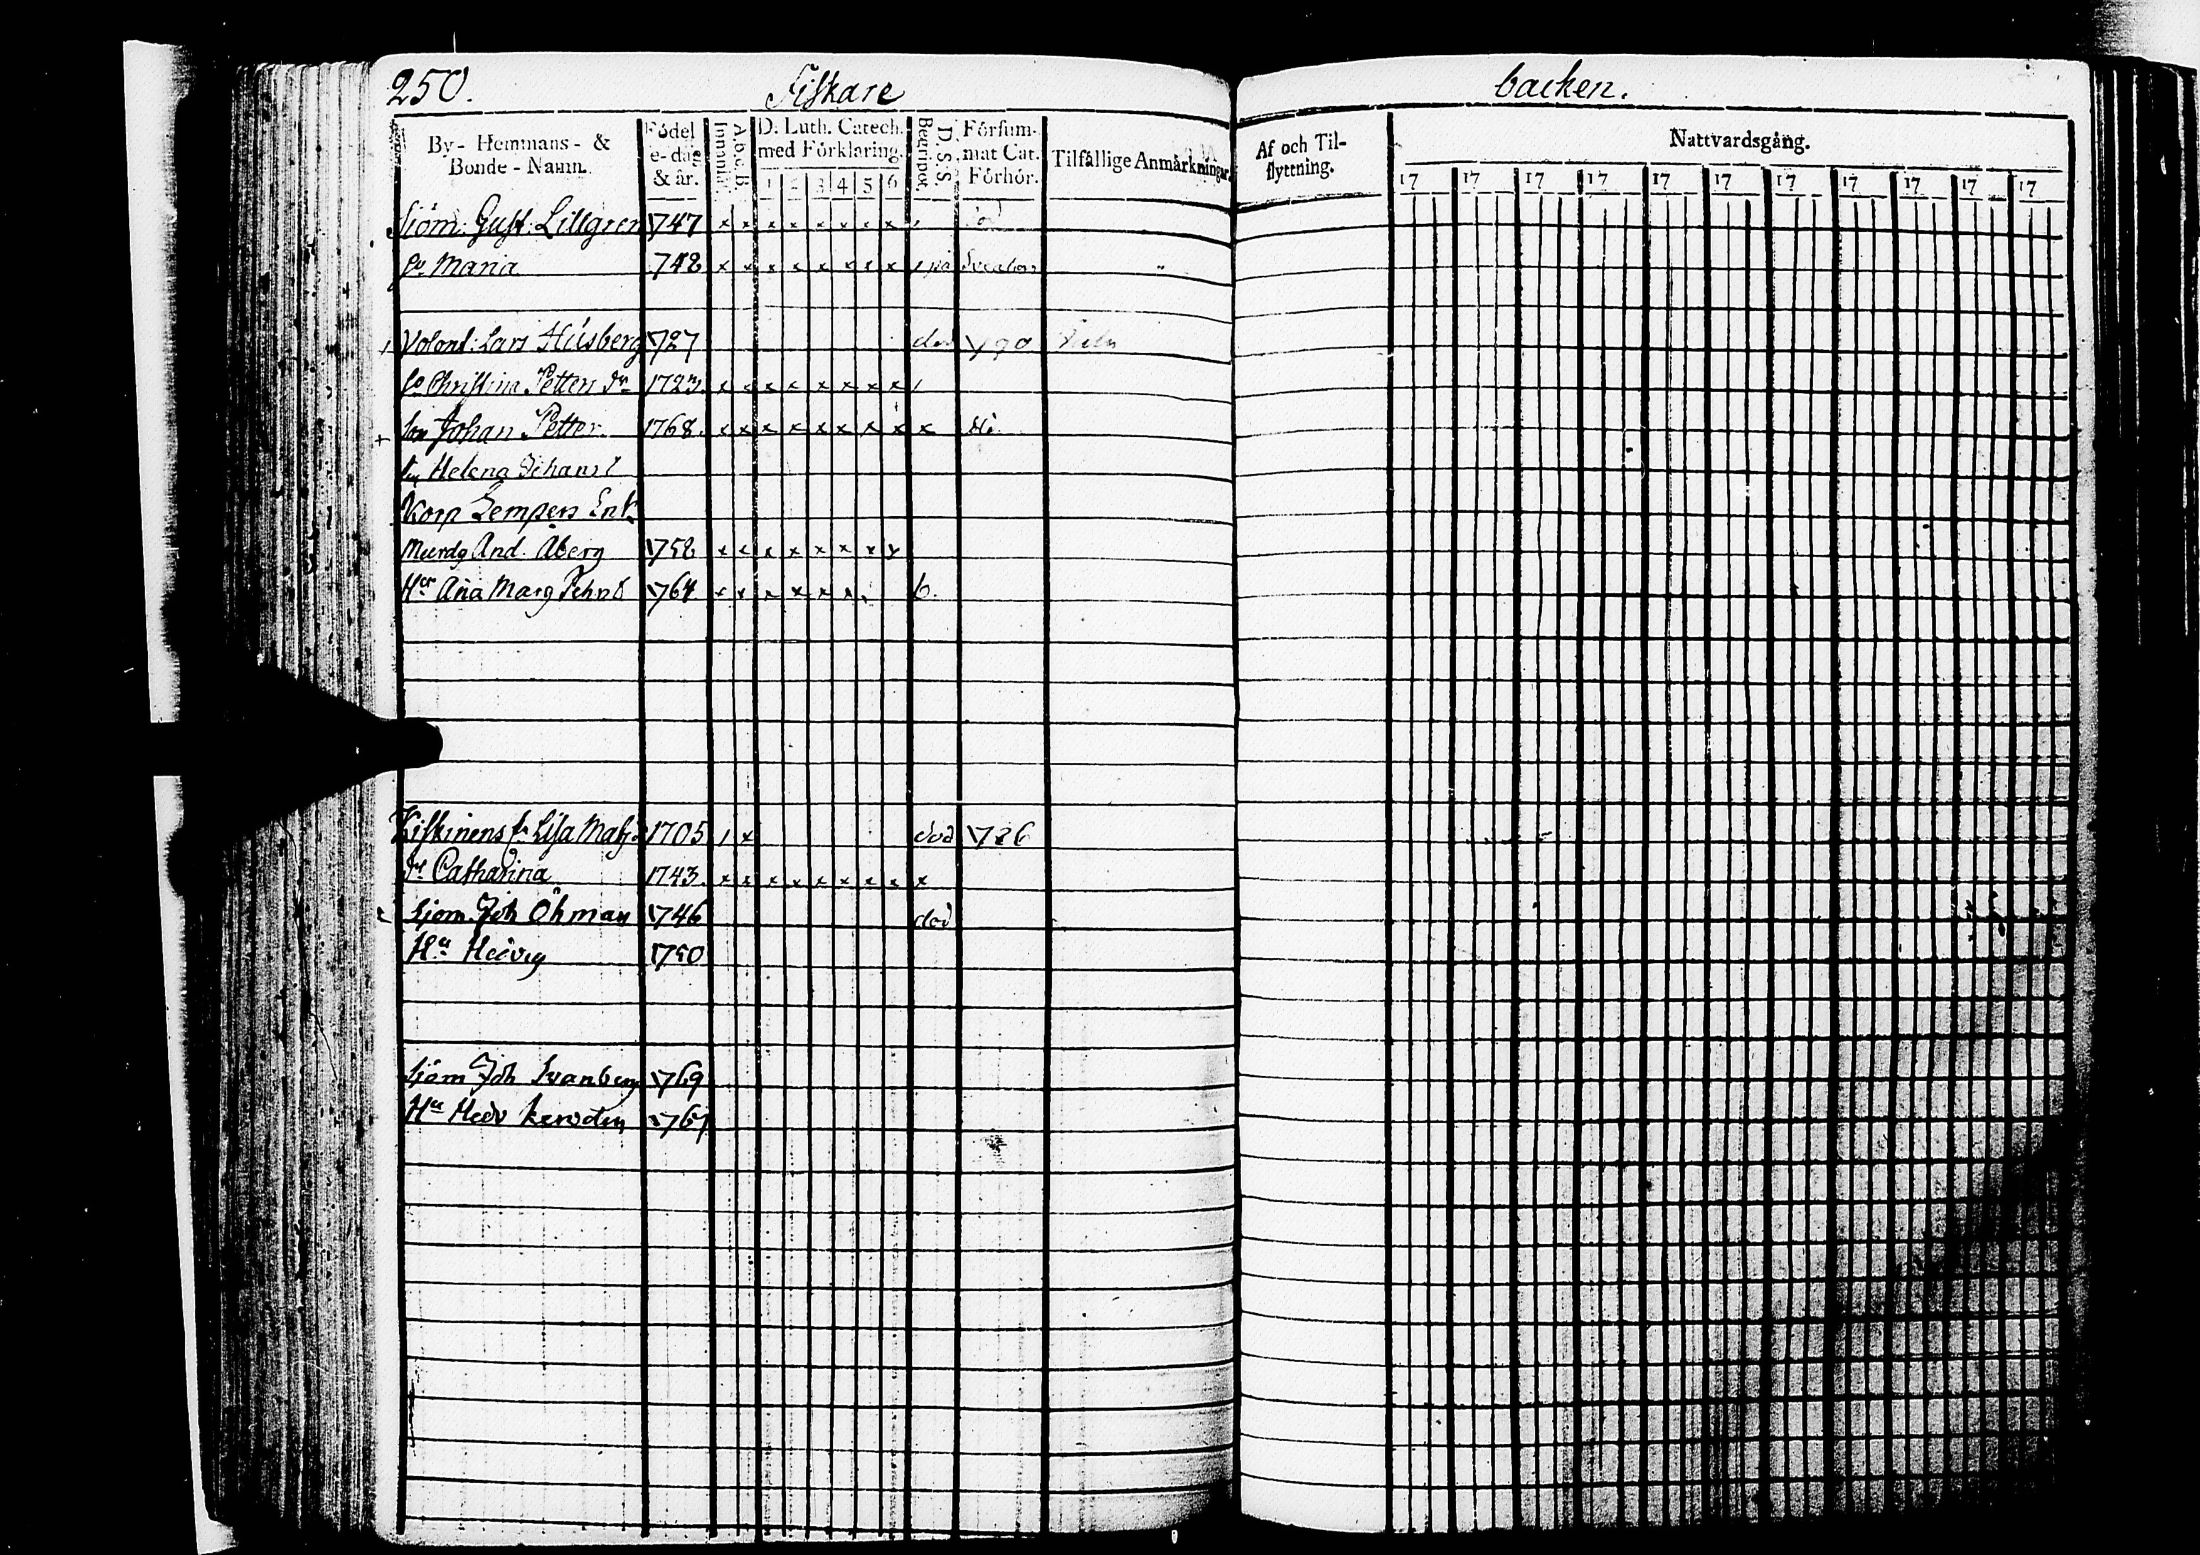 250. Fiskare backen.
By - Hemmans - & Bonde - Namn.
Födel e-dag & år.
Innanläs.
A. b. c. B.
D. Luth. Catech. med Förklaring.
1 2 3 4 5 6
D. S. S. Begripot.
Försummat Cat. Förhör.
Tilfällige Anmärkningar
Af och Til-flyttning.
Nattvardsgång.
17 17 17 17 17 17 17 17 17 17 17
Sjöm: Gust: Lillgren 1747 x x x x x x x x
Maria 742 x x x x x x x x på
Volont: Lars Husberg 1727 död 1790
Christina Petters dr 1723. x x x x x x x x
Johan Petter 1768. x x x x x x x x x
Helena Johansd
Korp Lempers Enk.
And. Åberg 1752 x x x x x x x x
Hu Aña Marg 1764 x x x x x x b.
Lisa Mats 1705 x död
dr Catharina 1743. x x x x x x x x x
Sjöm. Joh Öhman 1746 död
Hu Hedvig 1750
Sjöm Joh Svanberg 1769
Hu Hedv 1767